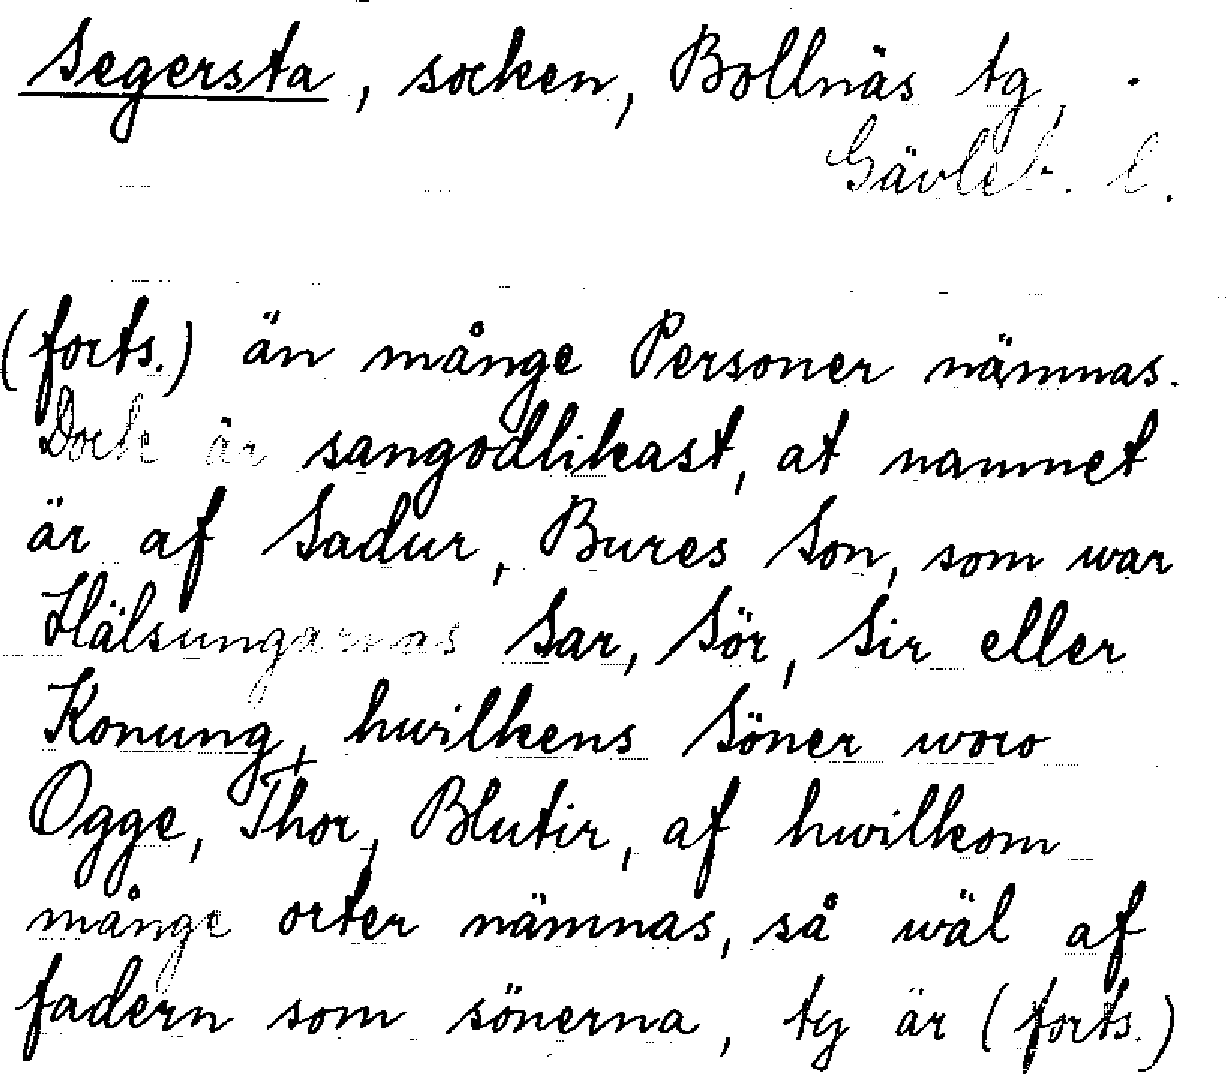 Segersta, socken, Bollnäs tg,
Gävleb. l.
(forts.) än månge Personer nämnas.
Dock är sangodlikast, at namnet
är af Sadur, Bures Son, som war
Hälsungarnas Sar, Sör, Sir eller
Konung, hwilkens Söner woro
Ogge, Thor, Blutir, af hwilkom
månge orter nämnas, så wäl af
fadern som sönerna, ty är (forts.)